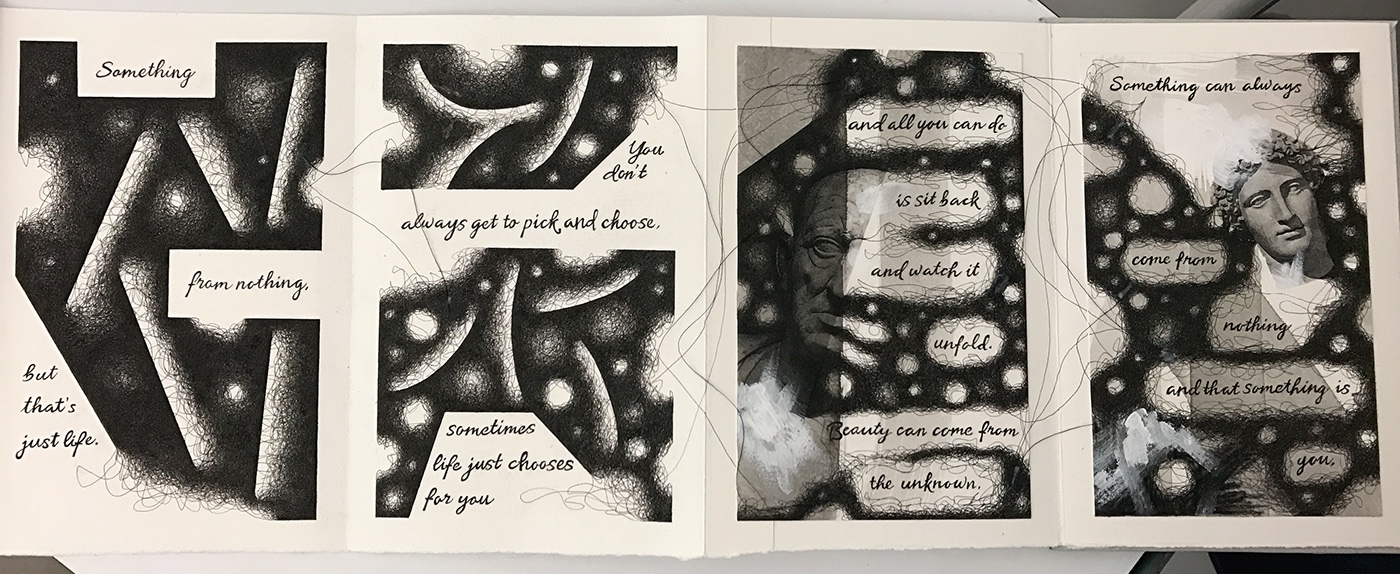 Something
from nothing,
but
that's
just life.
You
don't
always get to pick and choose,
sometimes
life just chooses
for you
and all you can do
is sit back
and watch it
unfold.
Beauty can come from
the unknown.
Something can always
come from
nothing
and that something is
you.